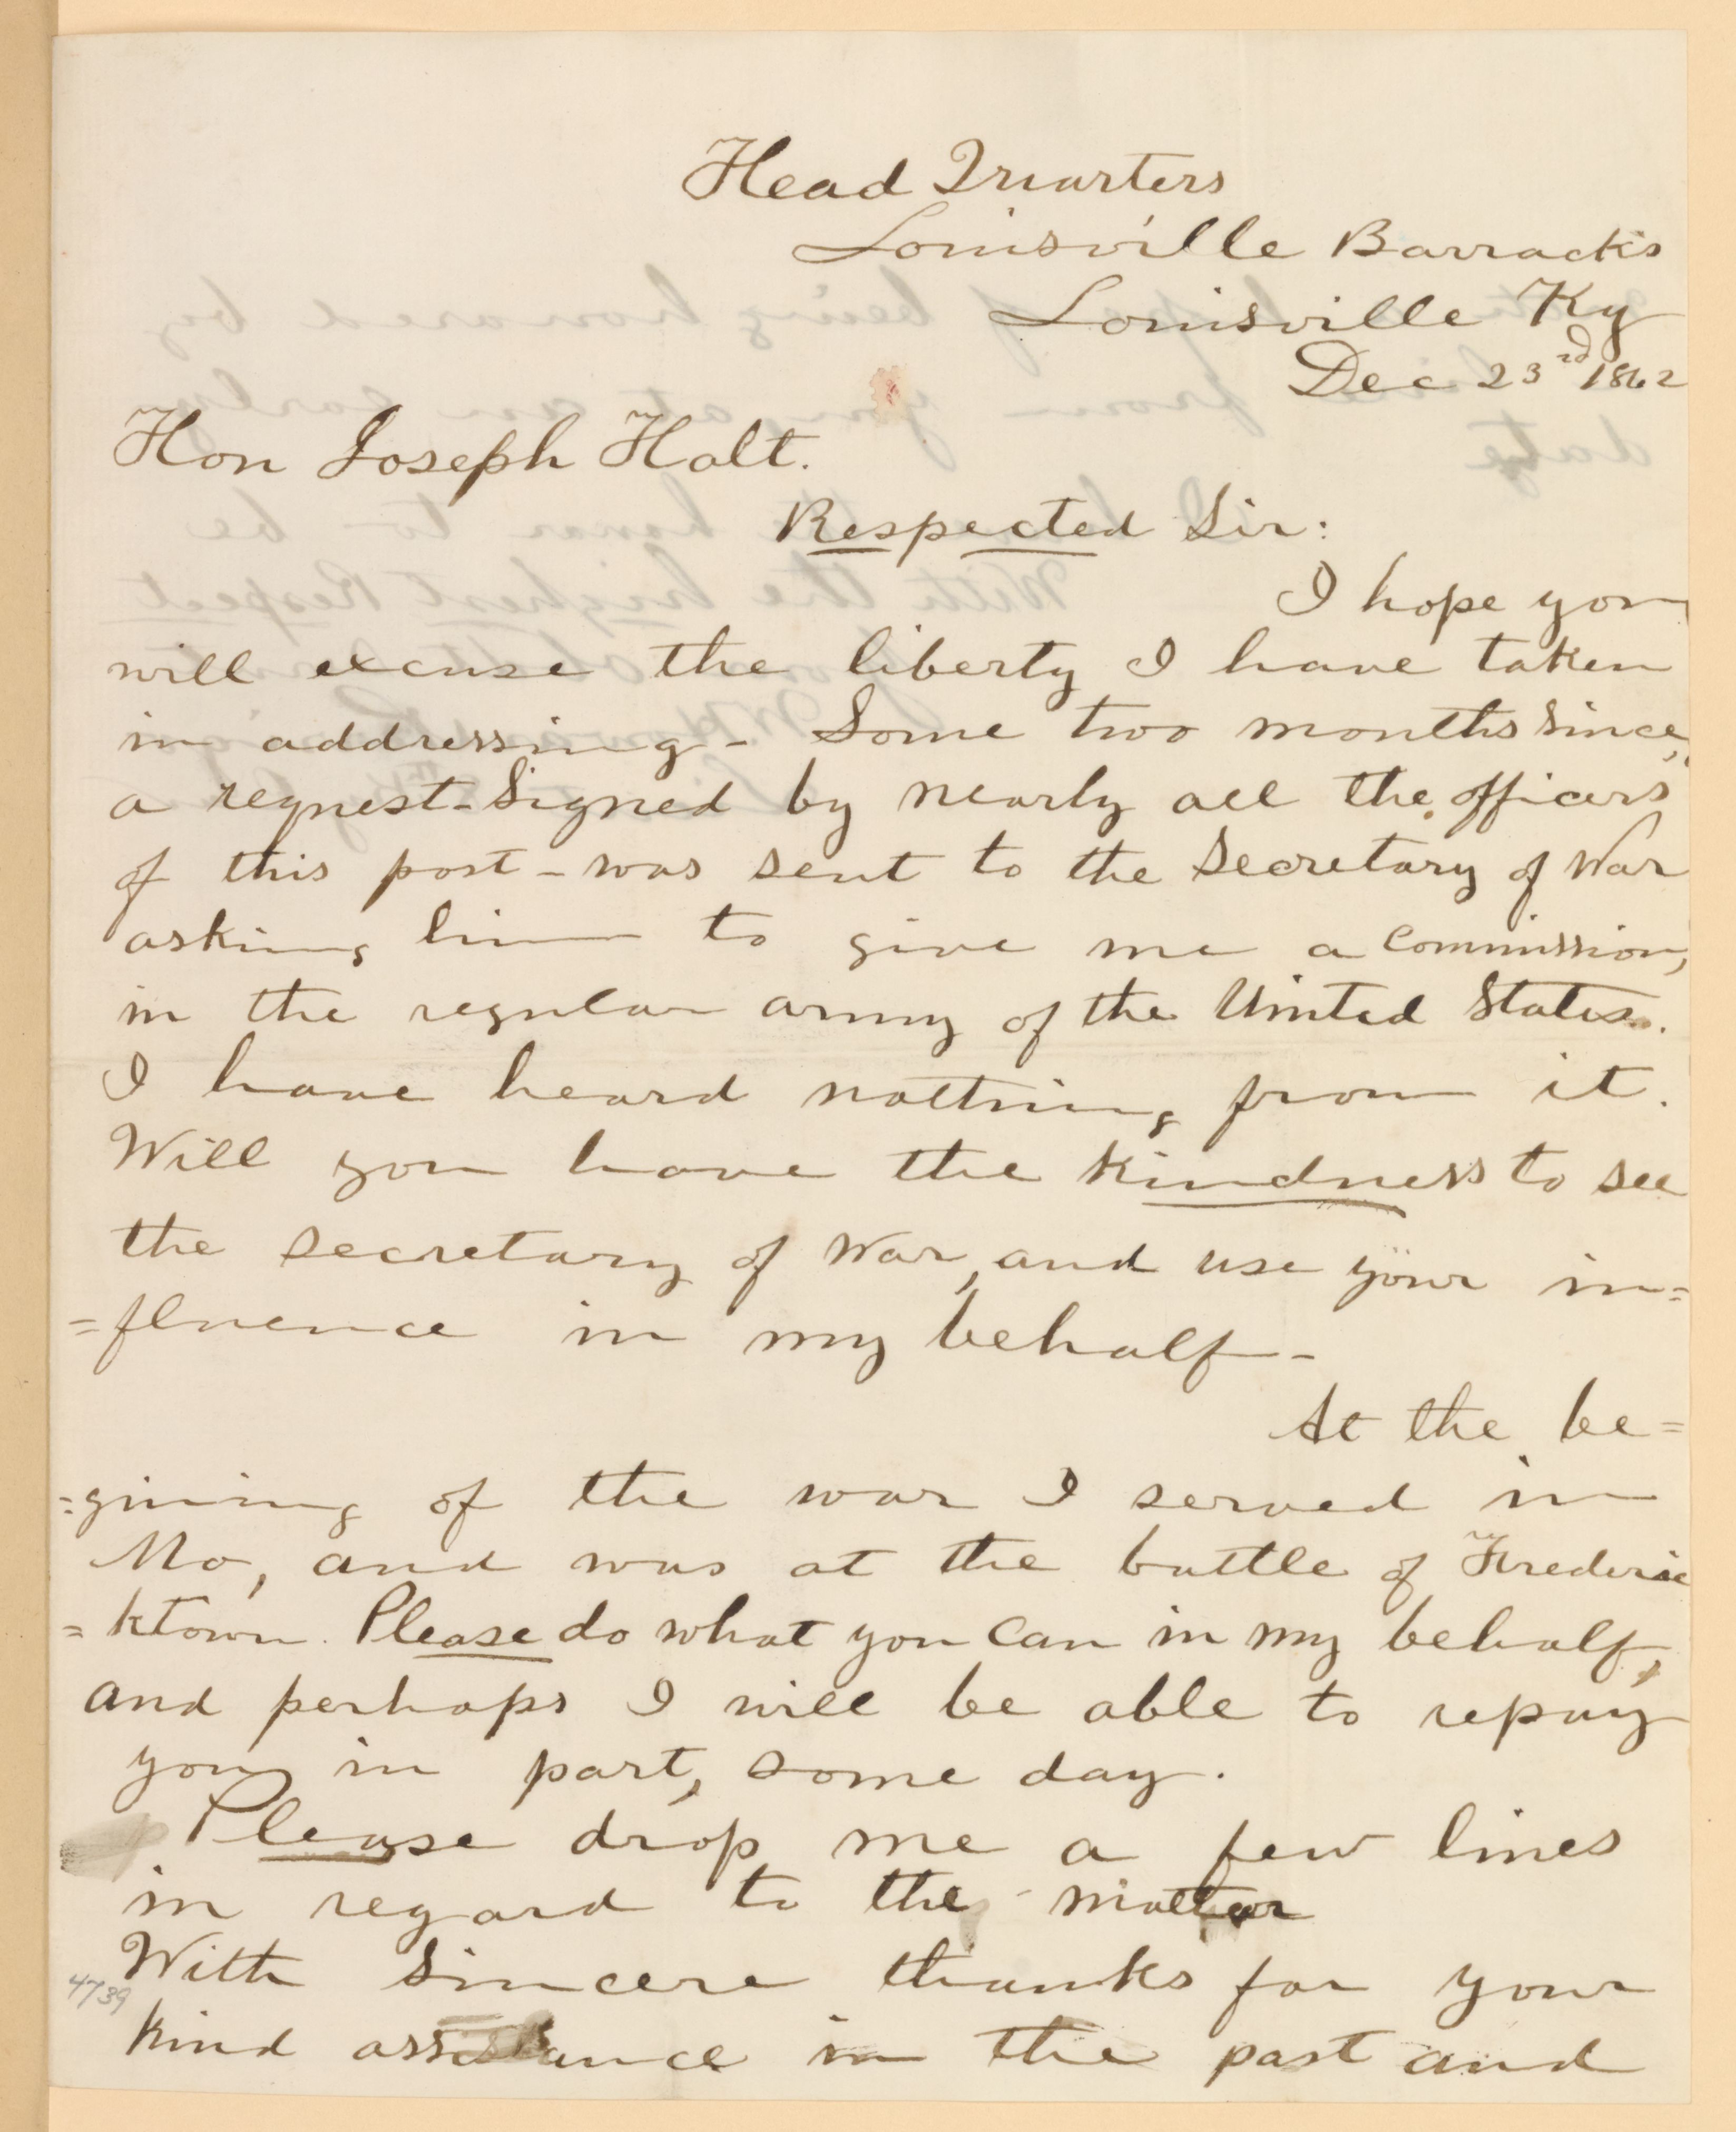 Head Quarters
Louisville Barracks
Louisville Ky
Dec 23rd 1862
Hon Joseph Holt.
Respected Sir:
I hope you
will excuse the liberty I have taken
in addressing - Some two months since,
a request - Signed by nearly all the officers
of this post - was sent to the Secretary of War
asking him to give me a Commission,
in the regular army of the United States.
I have heard nothing from it.
Will you have the kindness to see
the Secretary of War, and use your in=
=fluence in my behalf -
At the be=
=gining of the war I served in
Mo, and was at the battle of Frederic
=ktown. Please do what you can in my behalf,
and perhaps I will be able to repay
you in part, some day.
Please drop me a few lines
in regard to the matter
With Sincere thanks for your
4739
kind assistance in the past and